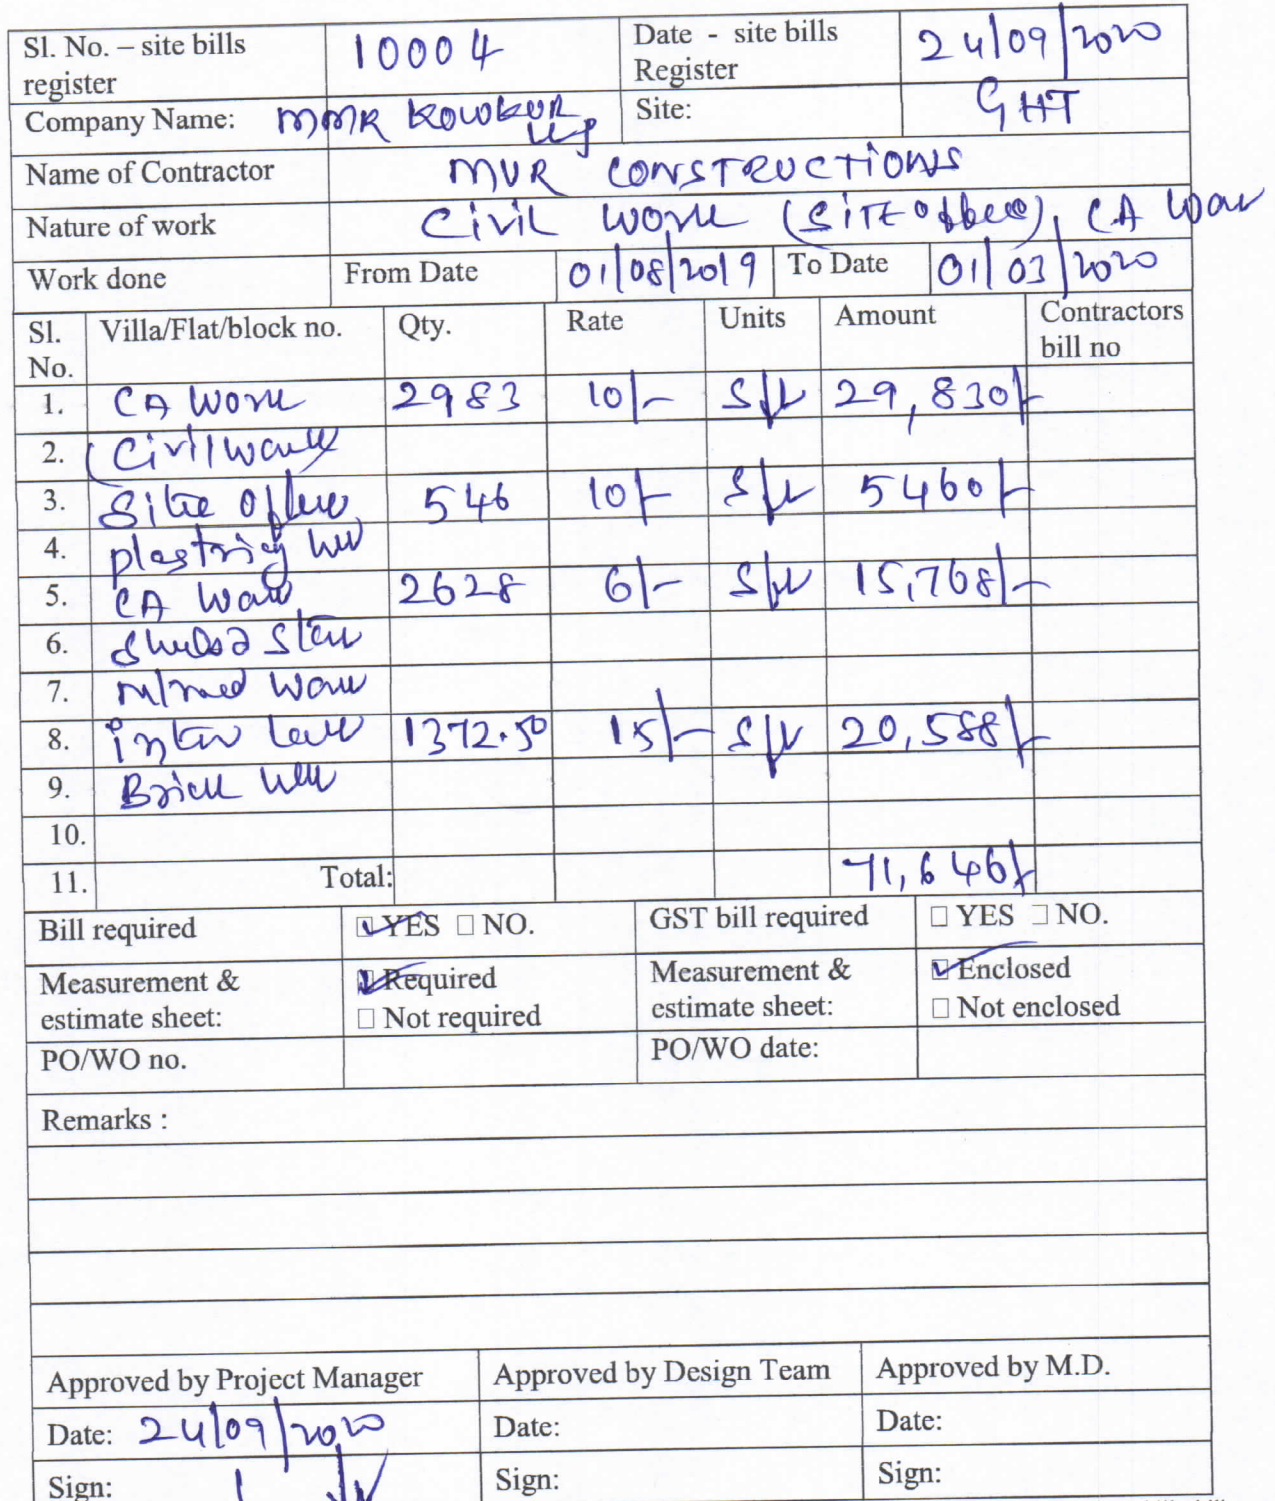 Sl. No. – site bills register 10004 Date - site bills Register 24/09/2020
Company Name: MMR KOWKUR LLP Site: GHT
Name of Contractor MVR CONSTRUCTIONS
Nature of work CIVIL WORK (SITE Office), CA Work
Work done From Date 01/08/2019 To Date 01/03/2020
Sl. No. Villa/Flat/block no. Qty. Rate Units Amount Contractors bill no
1. CA Work 2983 10/- Sft 29,830/-
2. (Civil work
3. Site Office 546 10/- Sft 5460/-
4. plastring
5. CA Work 2628 6/- Sft 15,768/-
6.
7. Work
8. 1372.50 15/- Sft 20,588/-
9. Brick
10.
11. Total: 71,646/-
Bill required ☑ YES □ NO. GST bill required □ YES □ NO.
Measurement & estimate sheet: ☑ Required □ Not required Measurement & estimate sheet: ☑ Enclosed □ Not enclosed
PO/WO no. PO/WO date:
Remarks :
Approved by Project Manager Approved by Design Team Approved by M.D.
Date: 24/09/2020 Date: Date:
Sign: Sign: Sign: